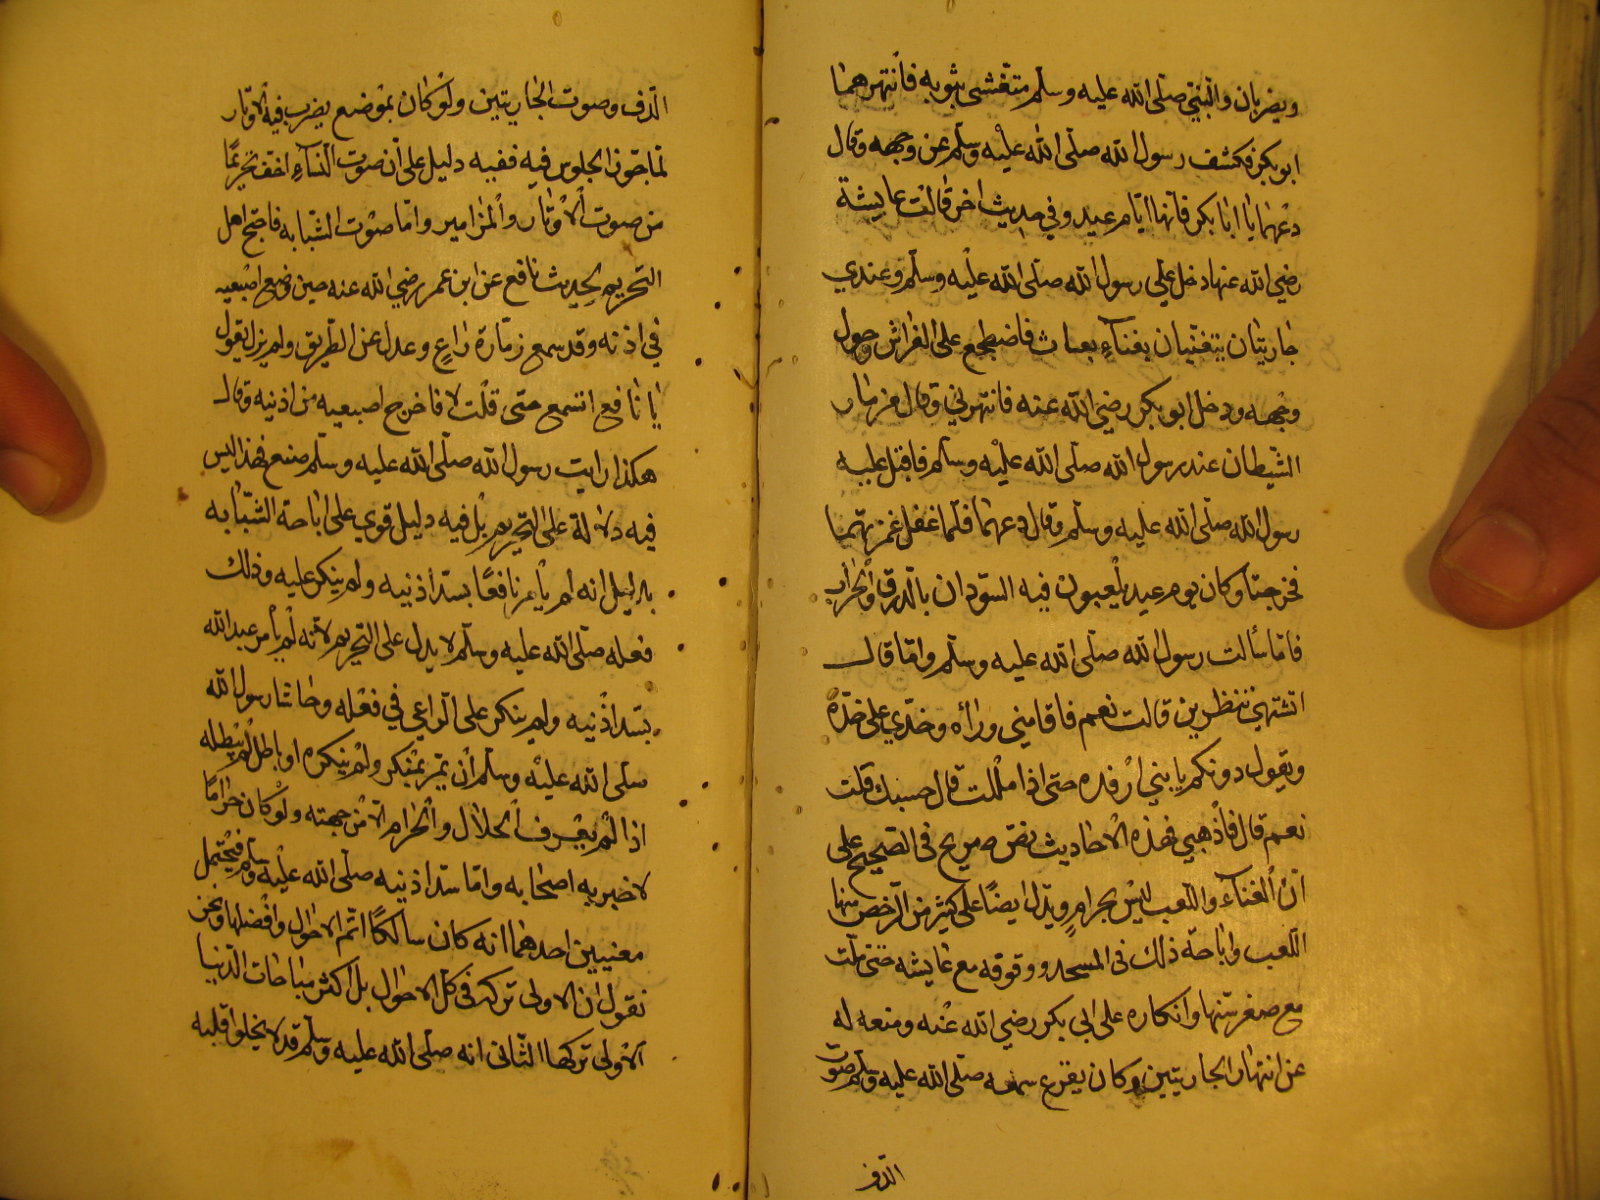 ويضربان والنبي صلى الله عليه وسلم متغشى بثوبه فانتهرهما
ابو بكر فكشف رسول الله صلى الله عليه وسلم عن وجهه وقال
دعهما يا ابا بكر فانها ايام عيد وفي حديث اخر قالت عايشة
رضي الله عنها دخل علي رسول الله صلى الله عليه وسلم وعندي
جاريتان يتغنيان بغناء بعاث فاضطجع على الفراش وحول
وجهه ودخل ابو بكر رضي الله عنه فانتهرني وقال مزمار
الشيطان عند رسول الله صلى الله عليه وسلم فاقبل عليه
رسول الله صلى الله عليه وسلم وقال دعهما فلما غفل غمزتهما
فخرجتا وكان يوم عيد يلعبون فيه السودان بالدرق والحراب
فاما سألت رسول الله صلى الله عليه وسلم واما قال
اتشتهي تنظرين قالت نعم فاقامني وراه وخدي على خده
ويقول دونكم يا بني ارفده حتى اذا مللت قال حسبك قلت
نعم قال فاذهبي فهذه الاحاديث نص صريح في الصحيح على
ان الغناء واللعب ليس بحرام ويدل ايضا على كثير من الرخص منها
اللعب واباحة ذلك في المسجد ووقوفه مع عايشه حتى ملت
مع صغر سنها وانكاره على ابي بكر رضي الله عنه ومنعه له
عن انتهار الجاريتين وكان يقرع سمعه صلى الله عليه وسلم صوت
الدف
الدف وصوت الجاريتين ولو كان بموضع يضرب فيه الاوتار
لما جوز الجلوس فيه ففيه دليل على ان صوت النساء اخف تحريما
من صوت الاوتار والمزامير واما صوت الشبابه فاحتج اهل
التحريم بحديث نافع عن ابن عمر رضي الله عنه حين وضع اصبعيه
في اذنه وقد سمع زمارة راع وعدل عن الطريق ولم يزل يقول
يا نافع اتسمع حتى قلت لا فاخرج اصبعيه من اذنيه وقال
هكذا رايت رسول الله صلى الله عليه وسلم صنع فهذا ليس
فيه دلالة على التحريم بل فيه دليل قوي على اباحة الشبابه
بدليل انه لم يأمر نافعا بسد اذنيه ولم ينكر عليه وذلك
فعله صلى الله عليه وسلم لا يدل على التحريم لانه لم يأمر عبد الله
بسد اذنيه ولم ينكر على الراعي في فعله وحاشا رسول الله
صلى الله عليه وسلم ان يمر بمنكر ولم ينكره او باطل لم يبطله
اذا لم يعرف الحلال والحرام الا من جهته ولو كان حراما
لاخبر به اصحابه واما سد اذنيه صلى الله عليه وسلم فيحتمل
معنيين احدهما انه كان سالكا اتم الاحوال وافضلها ونحن
نقول ان الاولى تركه في كل الاحوال بل اكثر مباحات الدنيا
الاولى تركها الثاني انه صلى الله عليه وسلم قد لا يخلوا قلبه